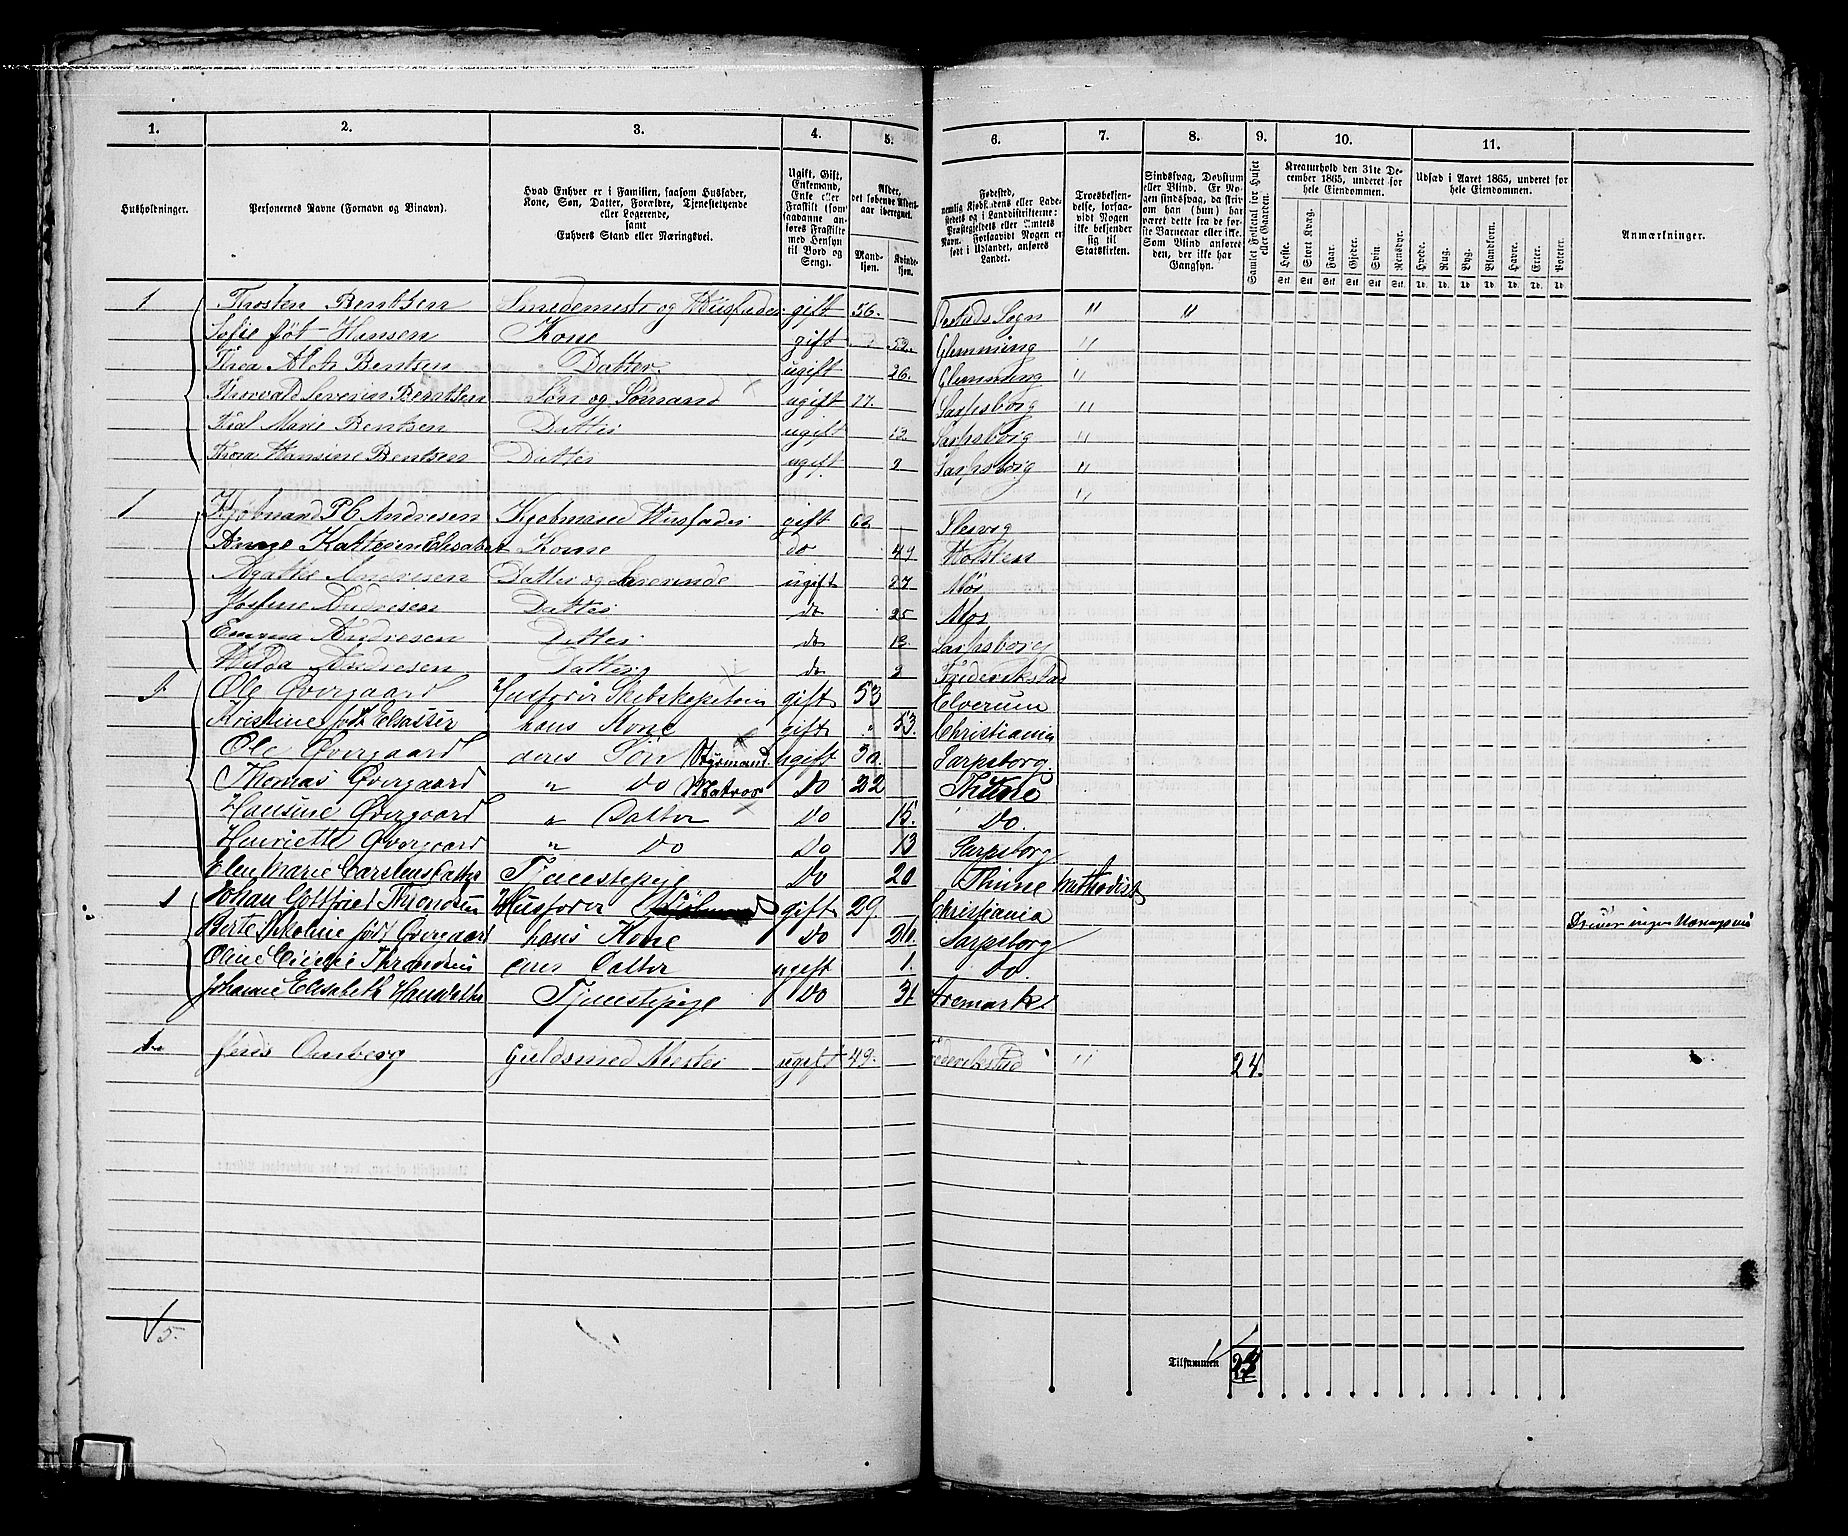 1. 2. 3. 4. 5. 6. 7. 8. 9. 10. 11.
Husholdninger.
Personernes Navne (Fornavn og Binavn).
Hvad Enhver er i Familien, saasom Husfader, Kone, Søn, Datter, Forældre, Tjenestetyende eller Logerende, samt Enhvers Stand eller Næringsvei.
Ugift, Gift, Enkemand, Enke eller Fraskilt (som saadanne anføres Fraskilte med Hensyn til Bord og Seng).
Alder, det løbende Alders-aar iberegnet.
Mandkjøn. Kvindekjøn.
Fødested, nemlig Kjøbstadens eller Ladestedets og i Landdistrikterne: Præstegjeldets eller Amtets Navn. Forsaavidt Nogen er født i Udlandet, anføres Landet.
Troesbekjendelse, forsaavidt Nogen ikke bekjender sig til Statskirken.
Sindssvag, Døvstum eller Blind. Er Nogen sindssvag, da skrives om han (hun) har været dette fra de første Barneaar eller ikke. Som Blind anføres den, der ikke har Gangsyn.
Samlet Folketal for Huset eller Gaarden.
Kreaturhold den 31te December 1865, underet for hele Eiendommen.
Heste. Stort Kvæg. Faar. Gjeder. Svin. Rensdyr.
Udsæd i Aaret 1865, underet for hele Eiendommen.
Hvede. Rug. Byg. Blandkorn. Havre. Erter. Poteter.
Anmærkninger.
1 Thosten Bentsen Smedemestr og Husfader gift 56. Sogn " "
Sofie föt Hansen Kone gift 52. Glemming "
Thea Bentsen Datter. ugift 26. Glemming "
Thorvald Severin Bentsen Søn og Sømand ugift 17. Sarpsborg "
Marie Bentsen Datter ugift 13. Sarpsborg "
Thora Hansine Bentsen Datter ugift 2 Sarpsborg "
1 Kjøbmand P C Andresen Kjøbmand Husfader gift Slesvig
Kathrine Elisabet Kone do 49 Holsten
Agathe Andresen Datter og ugift 27 Mos
Josefine Andresen Datter do 25 Mos
Emma Andresen Datter do 13. Sarpsborg
Hilda Andresen Datter do 2 Frederikstad
1. Ole Overgaard Husfader Skibskapitain gift 53 Elverum
Kristine født Elsasser hans Kone gift " 53. Christiania
Ole Overgaard deres Søn Styrmand. ugift 30. Sarpsborg.
Thomas Overgaard " Do Matros Do 22 Thune
Hansine Overgaard " Datter Do 15. Do.
Henriette Overgaard " Do Do 13 Sarpsborg
Elen Marie Carstensdatter Tjenestepige Do 20 Thune Methodist
1 Johan Gottfried Throndsen Husfader gift 29 Christiania Driver ingen Næringsvei
Berte Nikoline født Overgaard hans Kone Do Sarpsborg
Oline Throndsen Datter ugift 1. Do.
Johanne Elisabeth Hansdatter Tjenestepige Do 31 Aremark
1. Jens Amberg Guldsmed Mester ugift 49. Frederikstad " 24.
5.
Tilsammen